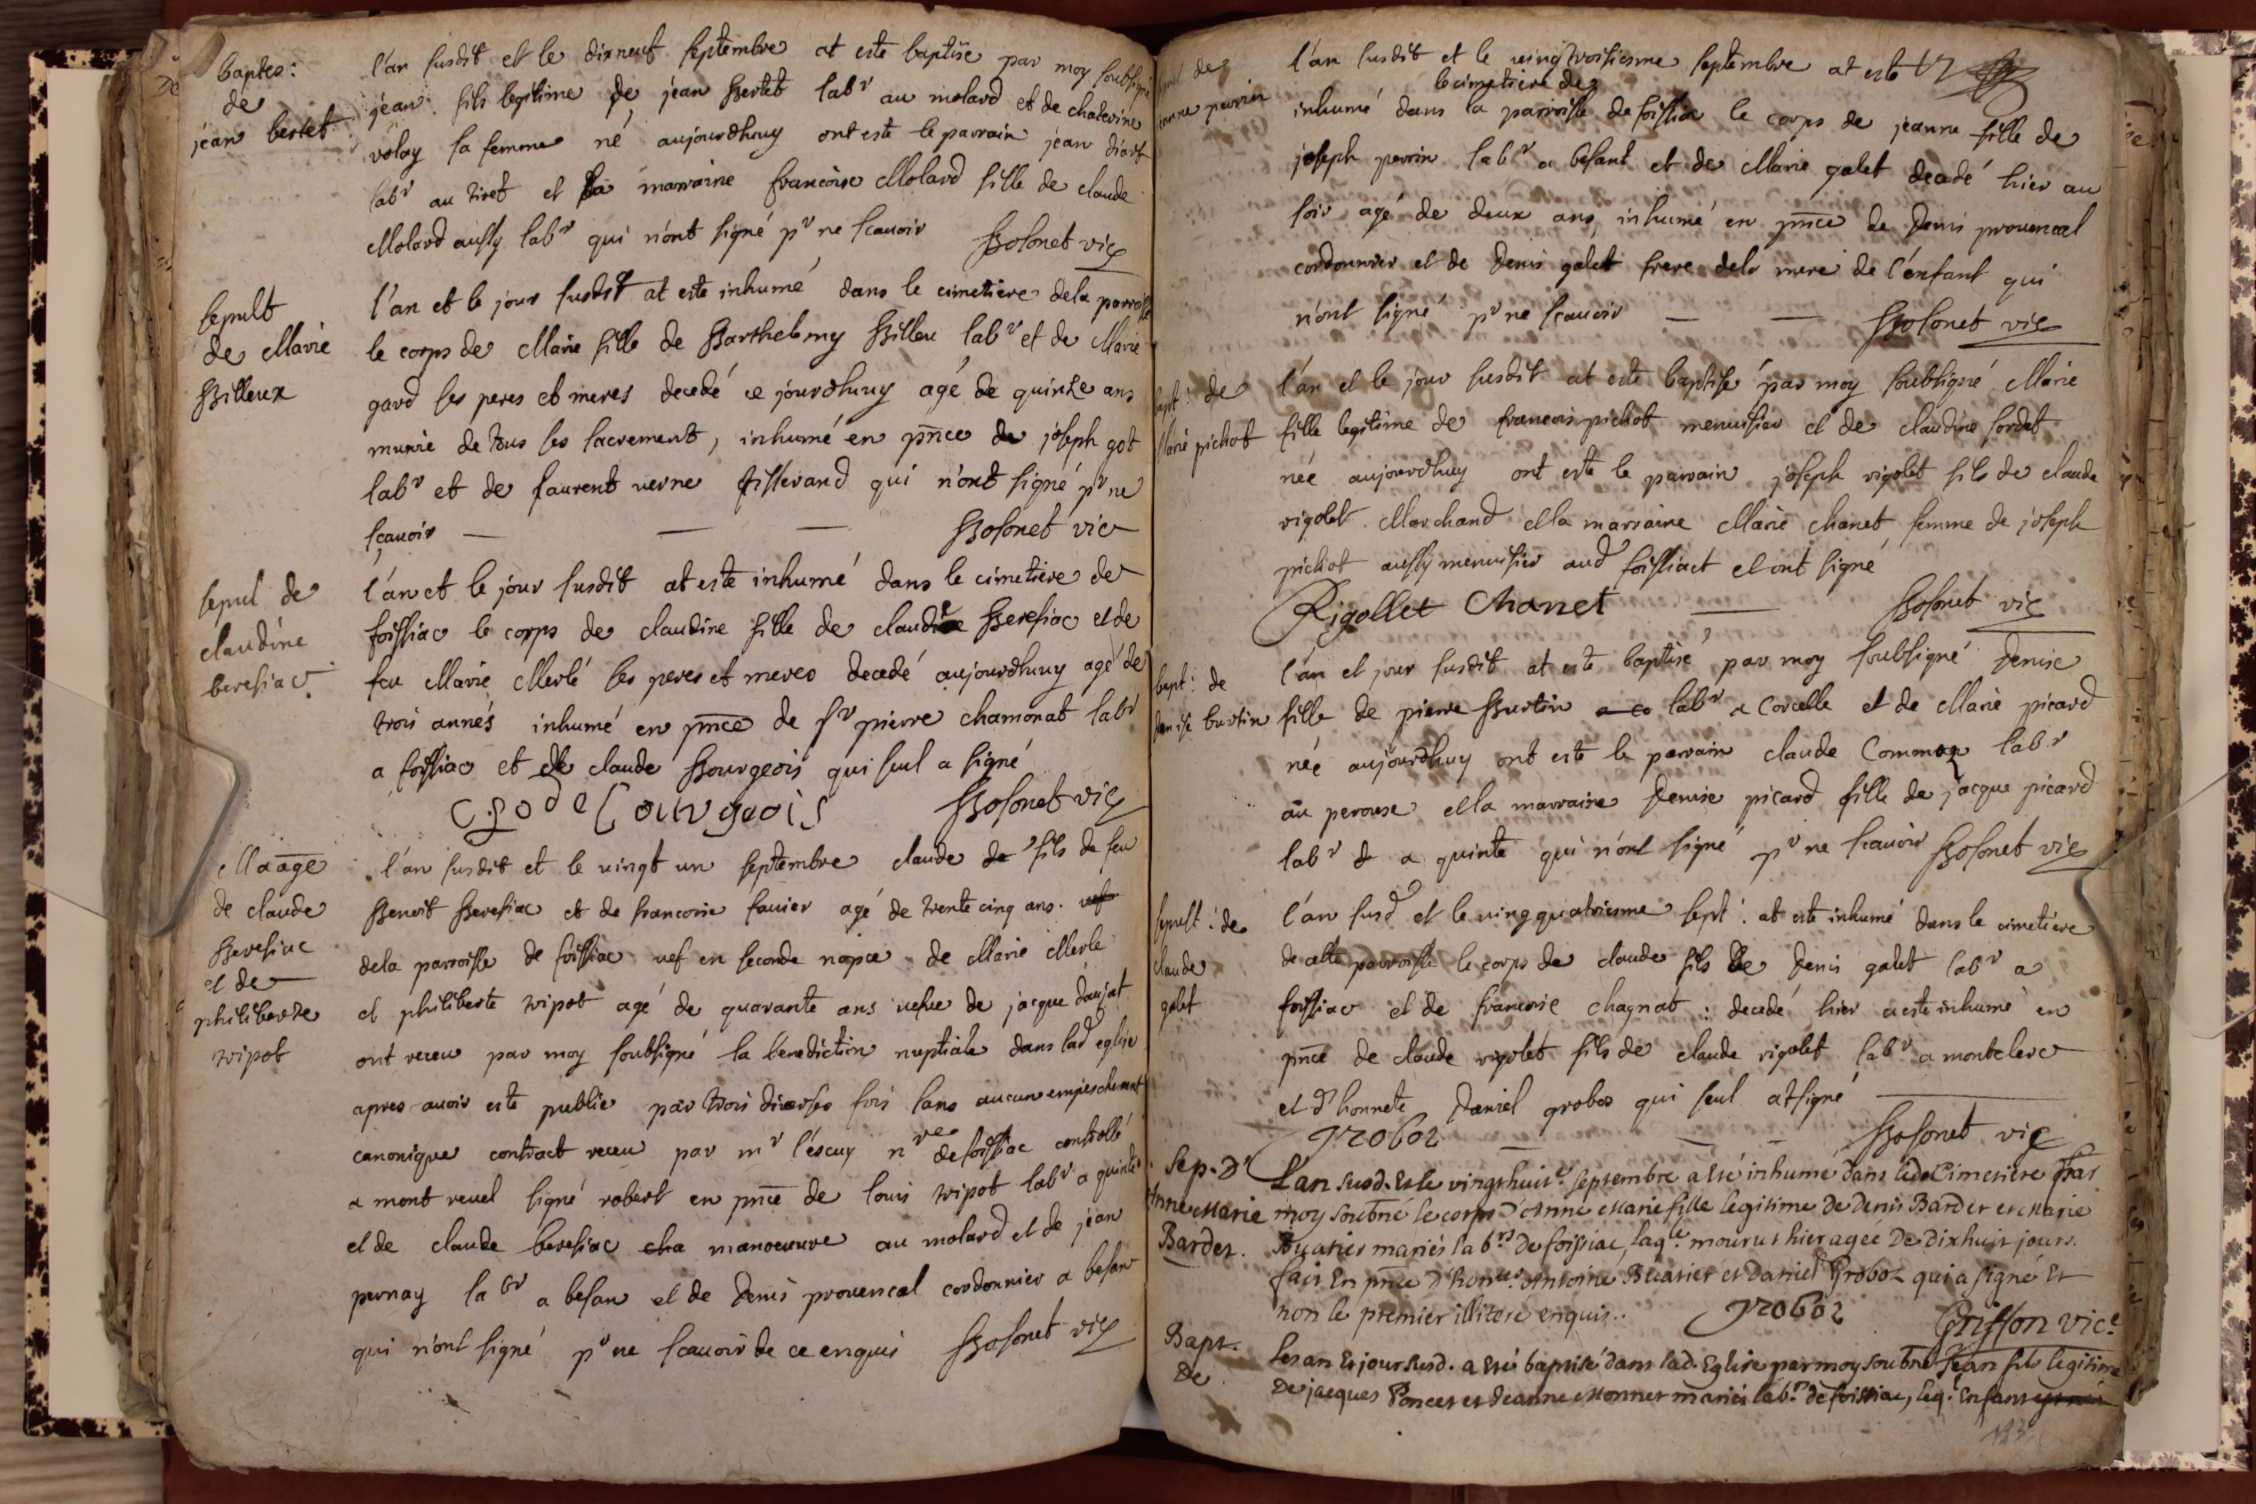 baptes:
de
jean bertet
l'an susdit et le dixneuf septembre at este baptise par moy soubsigné
jean fils legitime de jean Bertet labr au molard et de chaterine
volay sa femme né aujourdhuy ont este le parrain jean
labr au tiret et la marraine francoise Molard fille de claude
Molard aussy labr qui n'ont signé pr ne scauoir Bosonet vic
sepult
de Marie
Billeux
l'an et le jour susdit at este inhumé dans le cimetiere dela parroisse
le corps de Marie fille de Barthelemy Billeu labr et de Marie
gard ses peres et meres decedé ce jourdhuy agé de quinze ans
munie de tous ses sacrement, inhumé en pnce de joseph got
labr et de laurent uerne tisserand qui n'ont signé pr ne
scauoir Bosonet vic
sepul de
claudine
beresiac
l'an et le jour susdit at este inhumé dans le cimetiere de
foissiac le corps de claudine fille de claude Beresiac et de
feu Marie Merlé ses peres et meres decedé aujourdhuy agé de
trois annés inhumé en pnce de sr pierre chamonat labr
a foissiac et de claude Bourgeois qui seul a signé
Bosonet vic
Maage
de claude
Beresiac
et de
philiberte
tripot
l'an susdit et le uingt un septembre claude de fils de feu
Benoit Beresiac et de francoise fauier agé de trente cinq ans. uef
dela parroisse de foissiac uef en seconde nopce de Marie Merle
et philiberte tripot agé de quarante ans uefue de jacque daujat
ont receu par moy soubsigné la benediction nuptiale dans lad eglise
apres auoir este publie par trois diverses fois sans aucun empeschement
canonique contract receu par mr l'escuy nre de foissiac controllé
a mont reuel signé robert en pnce de louis tripot labr a quinte
et de claude beresiac cha manoeuure au molard et de jean
pernay labr a besan et de Denis prouencal cordonnier a besan
qui n'ont signé pr ne scauoir de ce enquis Bosonet vic
de
jeanne perrin
l'an susdit et le uing troisiesme septembre at este
le cimetiere de
inhumé dans la parroisse de foissiac le corps de jeanne fille de
joseph perrin labr a besant et de Marie galet decedé hier au
soir agé de deux ans, inhumé en pnce de Denis prouencal
cordonnier et de Denis galet frere dela mere de l'enfant qui
n'ont signé pr ne scauoir Bosonet vic
bapt: de
Marie pichot
l'an et le jour susdit at este baptisé par moy soubsigné Marie
fille legitime de francois pichot menuisier et de claudine sordet
née aujourdhuy ont este le parrain joseph rigolet fils de claude
rigolet Marchand et la marraine Marie chanet femme de joseph
pichot aussy menuisier aud foissiact et ont signé
Rigollet Chanet Bosonet vic
bapt: de
denise burtin
l'an et jour susdit at este baptisé par moy soubsigné Denise
fille de pierre Burtin a co labr a Corcelle et de Marie picard
née aujourdhuy ont este le parrain claude
labr
au perouse et la marraine Denise picard fille de jacque picard
labr d a quinte qui n'ont signé pr ne scauoir Bosonet vic
sepult: de
claude
galet
l'an susd et le uing quatriesme sept: at este inhumé dans le cimetiere
de cette parroisse le corps de claude fils de Denis galet labr a
foissiac et de francoise chagnat: decedé hier a este inhumé en
pnce de claude rigolet fils de claude rigolet labr a monteler
et d'honnete Daniel groboz qui seul at signé
groboz Bosonet vic
Sep. D'
Anne Marie
Bardet.
L'an susd. et le vingthuit.e septembre a été inhumé dans led. Cimetiere par
moy soubné le corps d'Anne Marie fille legitime de Denis Bardet et Marie
Buatier mariés labrs de foissiac, laqle mourut hier agée de dixhuit jours.
fait en pnce d'honnes Antoine Buatier et Daniel Groboz qui a signé et
non le premier illiteré enquis. groboz Griffon vic.e
Bapt.
De
Les an et jour susd. a été baptisé dans lad. Eglise par moy soubné Jean fils legitime
De jacques Poncet et Jeanne Monnet mariés labrs de foissiac, leq. Enfant